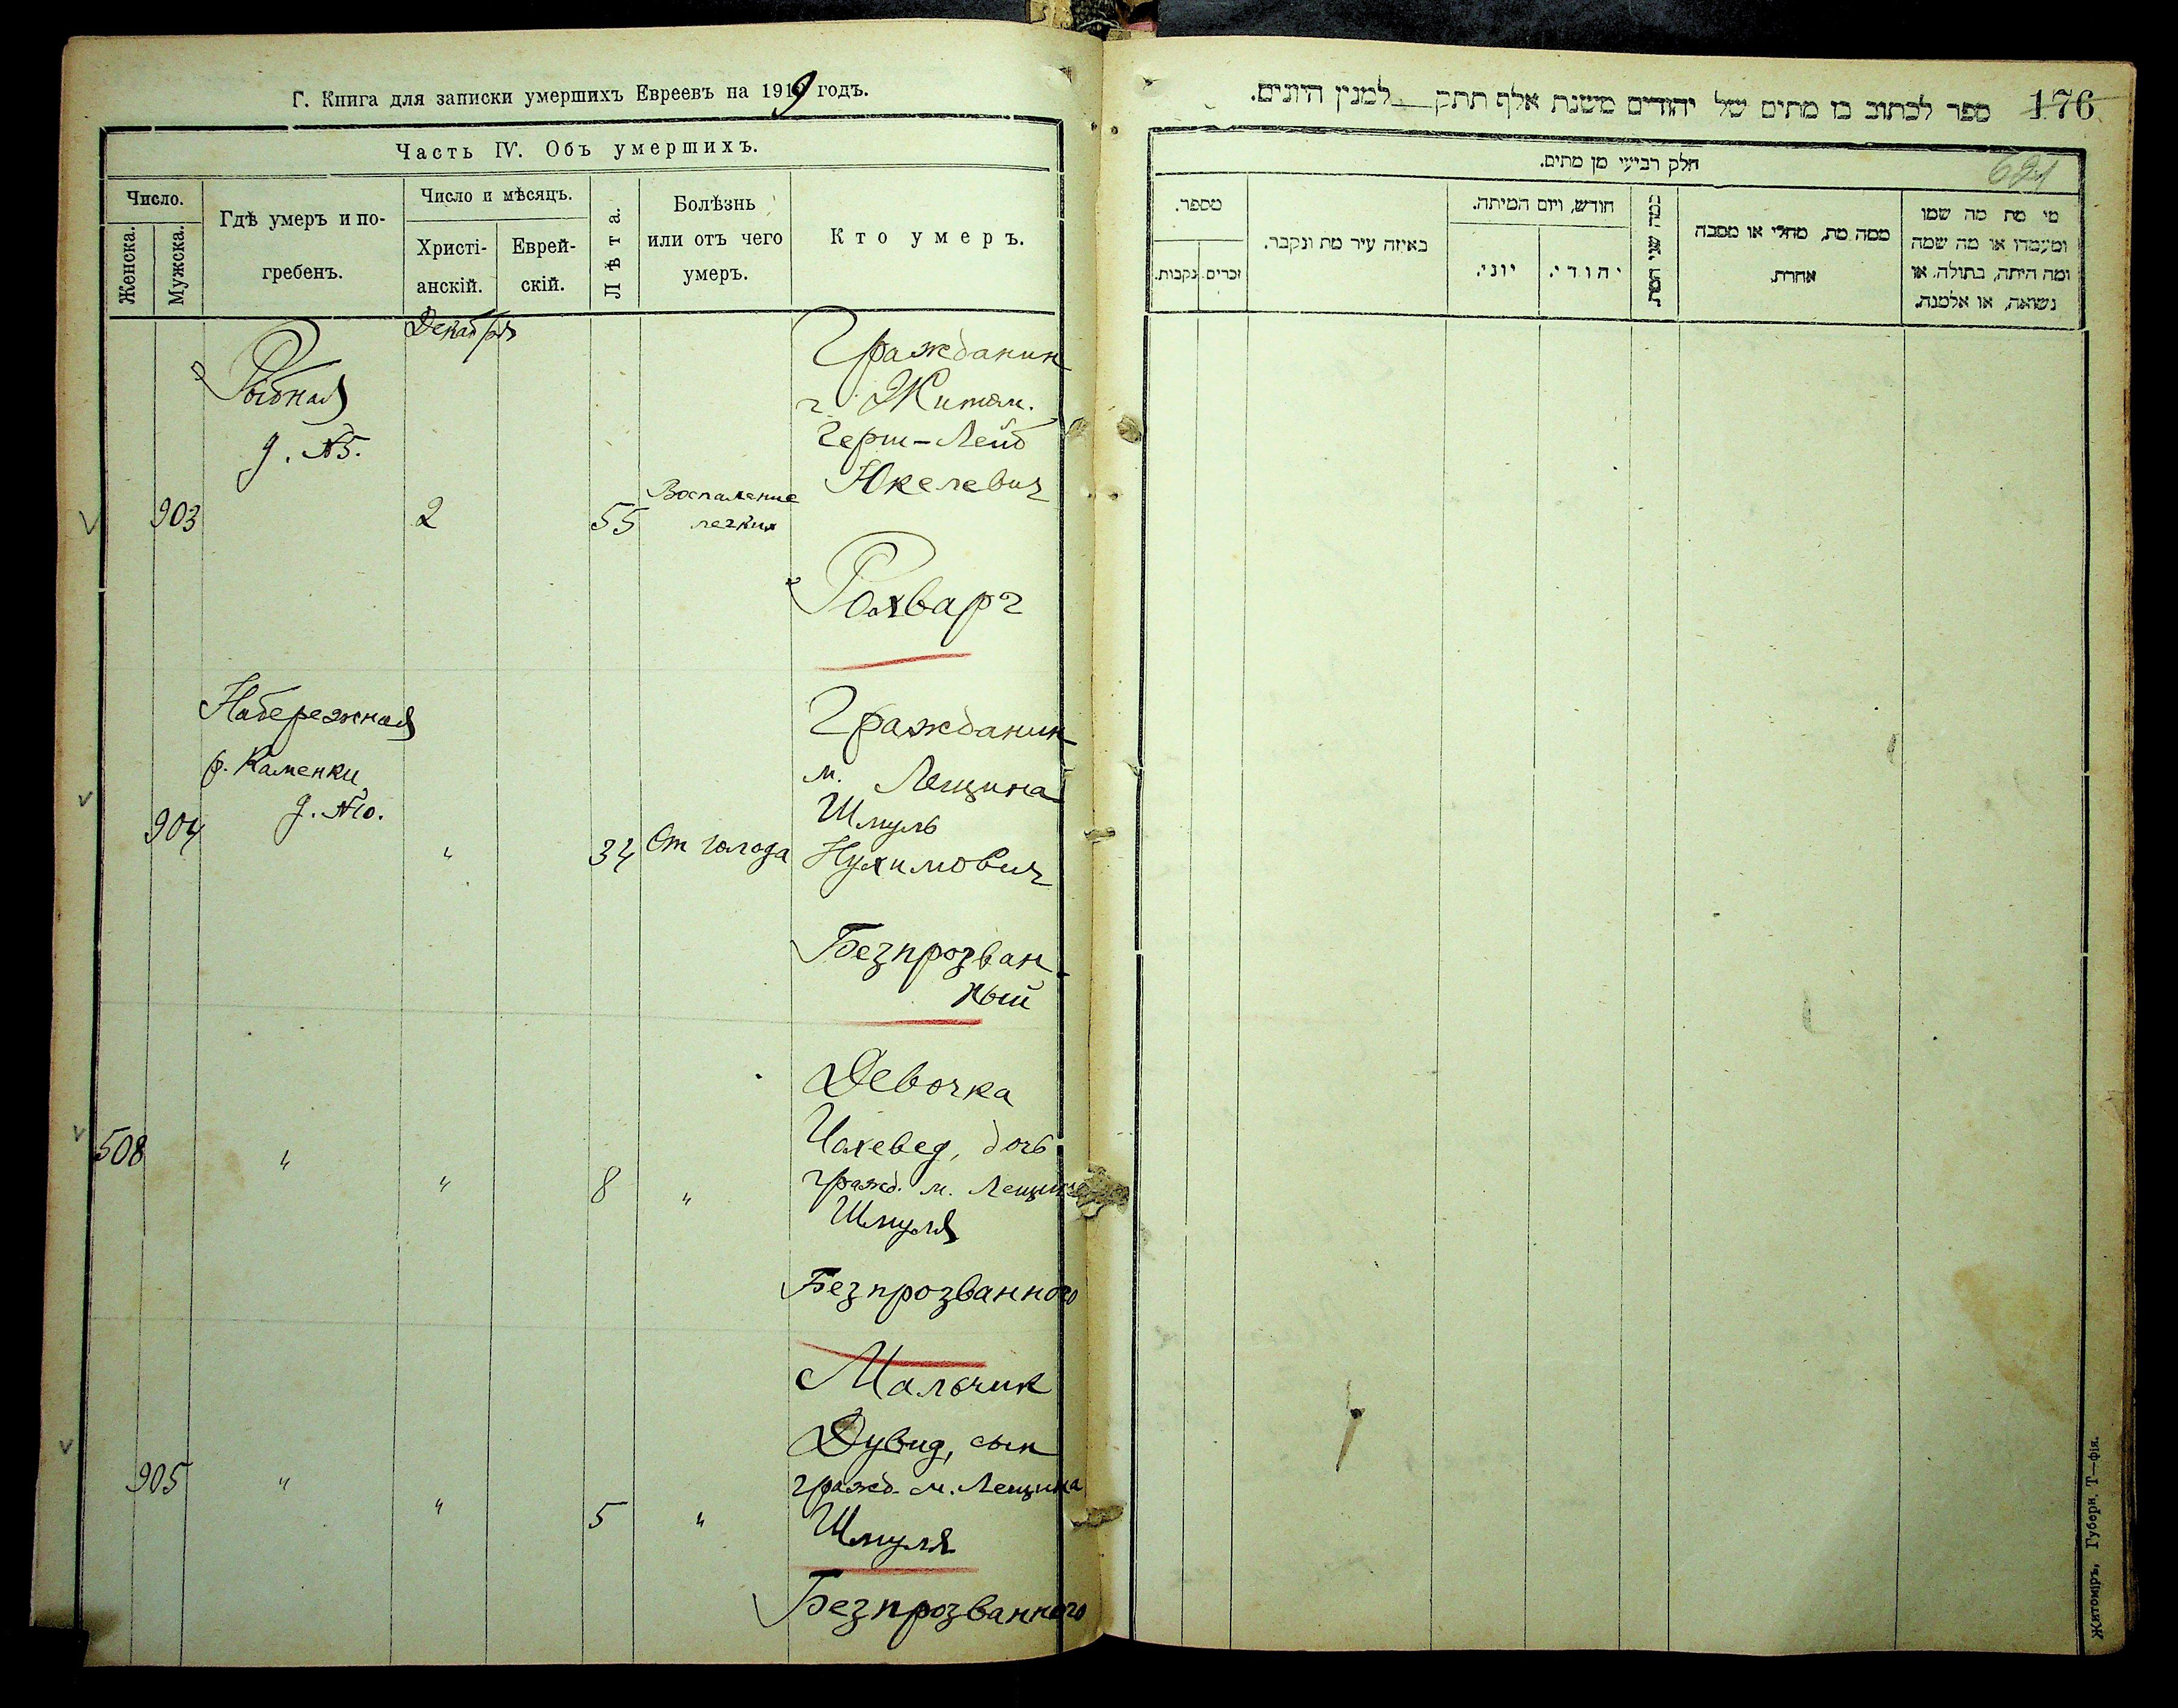 Г. Книга для записки умершихъ Евреевъ на 1919 годъ.
Часть IV. Объ умершихъ.
Число.
Женска.
Мужска.
Гдѣ умеръ и по-
гребенъ.
Число и мѣсяцъ.
Христі-
анскій.
Еврей-
скій.
Лѣта.
Болѣзнь
или отъ чего
умеръ.
Кто умеръ.
Декабря
903
Рыбная
д. №5.
2
55
Воспаление
легких
Гражданин
г. Житом.
Герш-Лейб
Юкелевич
Рохварг
904
Набережная
р. Каменки
д. №10.
"
34
От голода
Гражданин
м. Лещина
Шмуль
Нухимович
Безпрозван-
ный
508
"
"
8
"
Девочка
Иохевед, дочь
гражд. м. Лещина
Шмуля
Безпрозванного
905
"
"
5
"
Мальчик
Дувид, сын
гражд. м. Лещина
Шмуля
Безпрозванного
176
ספר לכתוב בו מתים של יהודים משנת אלף תתק למנין היונים.
621
חלק רביעי מן מתים.
מספר.
זכרים
נקבות.
באיזה עיר מת ונקבר.
חודש, ויום המיתה.
יוני.
יהודי.
כמה שני המת.
ממה מת, מחלי או מסבה
אחרת.
מי מת מה שמו
ומעמדו או מה שמה
ומה היתה, בתולה, או
נשואה, או אלמנה.
Житоміръ, Губерн. Т—фія.